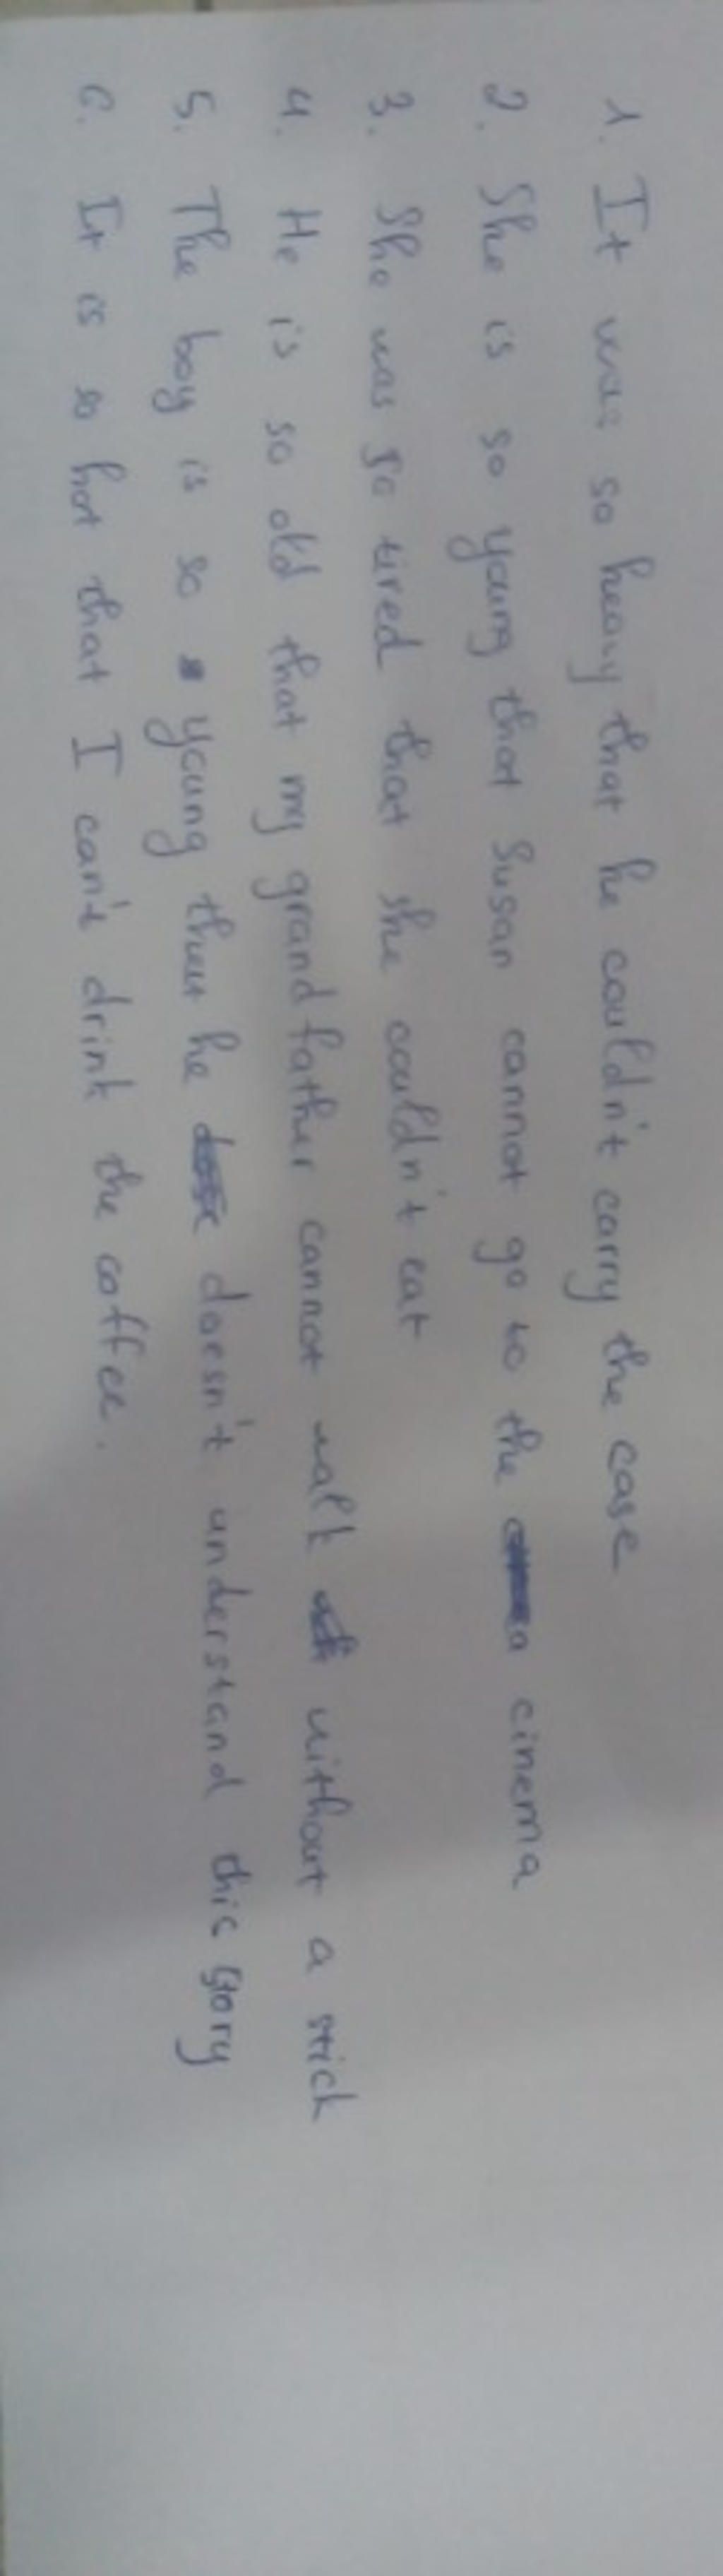 1. It was so heavy that he couldn't carry the case
2. She is so young that Susan cannot go to the cinema
3. She was so tired that she couldn't eat
4. He is so old that my grandfather cannot walk without a stick
5. The boy is so young that he doesn't understand this story
6. It is so hot that I can't drink the coffee.